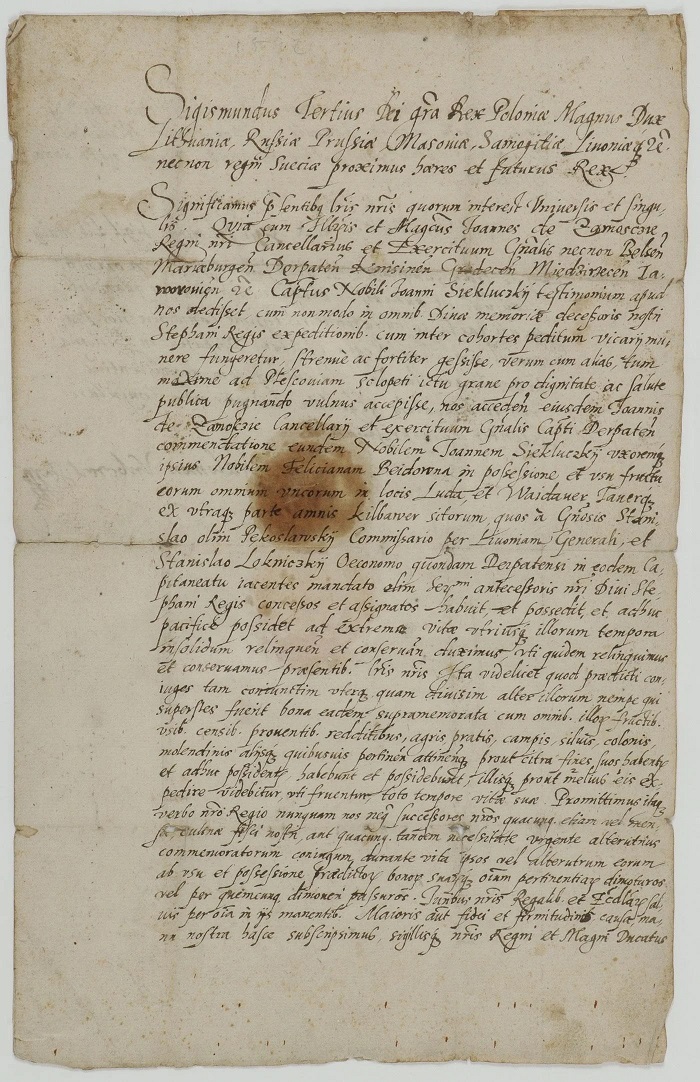 Sigismundus Tertius Dei gra Rex Poloniæ Magnus Dux
Lithuaniæ, Russiæ Prussiæ Masoviæ, Samogitiæ Livoniæq
necnon regni Sueciæ proximus hæres et futurus Rex
Significamus pntibq lris nris quorum interest Universis et singu-
lis. Quia cum Illris et Magcus Joannes de Zamoscie
Regni nri Cancellarius et Exercituum Gnalis necnon Belsen
Mariæburgen Derpaten Miedzirzecen Ja-
worovien Captus Nobili Joanni Siekluczky testimonium apud
nos dedisset cum non modo in omnib. Divæ memoriæ decessoris nostri
Stephani Regis expeditionib. cum inter cohortes peditum vicarij mu-
nere fungeretur, strenue ac fortiter gessisse, verum cum alias, tum
maxime ad Plescoviam sclopeti ictu grave pro dignitate ac salute
publica pugnando vulnus accepisse, nos acceden eiusdem Joannis
de Zamoscie Cancellarij et exercituum Gnalis Capti Derpaten
commendatione eundem Nobilem Joannem Siekluczky uxoremq
ipsius Nobilem Felicianam in possessione et usu fructu
eorum omnium uncorum in locis Luda et
ex utraq parte amnis sitorum, quos a Gnosis Stani-
slao olim Pekoslawsky Commissario per Livoniam Generali, et
Stanislao Lokniczky Oeconomo quondam Derpatensi in eodem Ca-
pitaneatu iacentes mandato olim antecessoris nri Divi Ste-
phani Regis concessos et assignatos habuit, et possedit, et adhuc
pacifice possidet ad extrema vitæ utriusq illorum tempora
in solidum relinquen et conservan duximus uti quidem relinquimus
et conservamus præsentib. lris nris. Ita videlicet quod prædicti con-
iuges tam coniunctim uterq quam divisim alter illorum nempe qui
superstes fuerit bona eadem supramemorata cum omnib. illor fructib.
usib. censib. proventib. redditibus, agris pratis, campis, silvis, colonis,
molendinis alijsq quibusvis pertinen attinenq prout citra fines suos habent
et adhuc possident, habebunt et possidebunt, illisq prout melius eis ex-
pedire videbitur uti fruentur, toto tempore vitæ suæ. Promittimus itaq
verbo nro Regio nunquam nos neq successores nros quacunq etiam vel
fisci nostri, aut quacunq tandem necessitate urgente alterutrius
commemoratorum coniugum, durante vita ipsos vel alterutrum eorum
ab usu et possessione prædictor bonor oium pertinentiar dimoturos
vel per quemcunq dimoveri passuros. Juribus nris Regalib. et Ecclar sal-
vis per oia in ijs manentib. Maioris aut fidei et firmitudinis causa ma-
nu nostra hasce subscripsimus, sigillisq nris Regni et Magni Ducatus